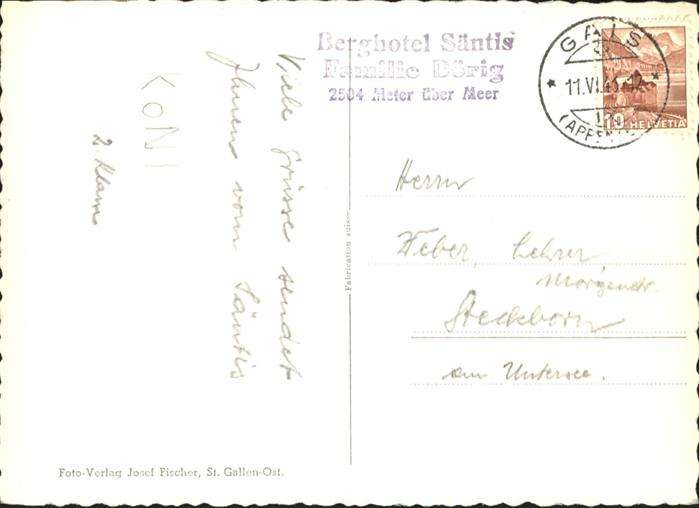 Viele Grüsse sendet
Ihnen vom Säntis
KONI
2. Klasse
Berghotel Säntis
Familie Dörig
2504 Meter über Meer
GAIS
11.VI.
(APPENZ
10 HELVETIA
Herrn
Weber, Lehrer
Steckborn
am Untersee.
Fabrication suisse
Foto-Verlag Josef Fischer, St. Gallen-Ost.